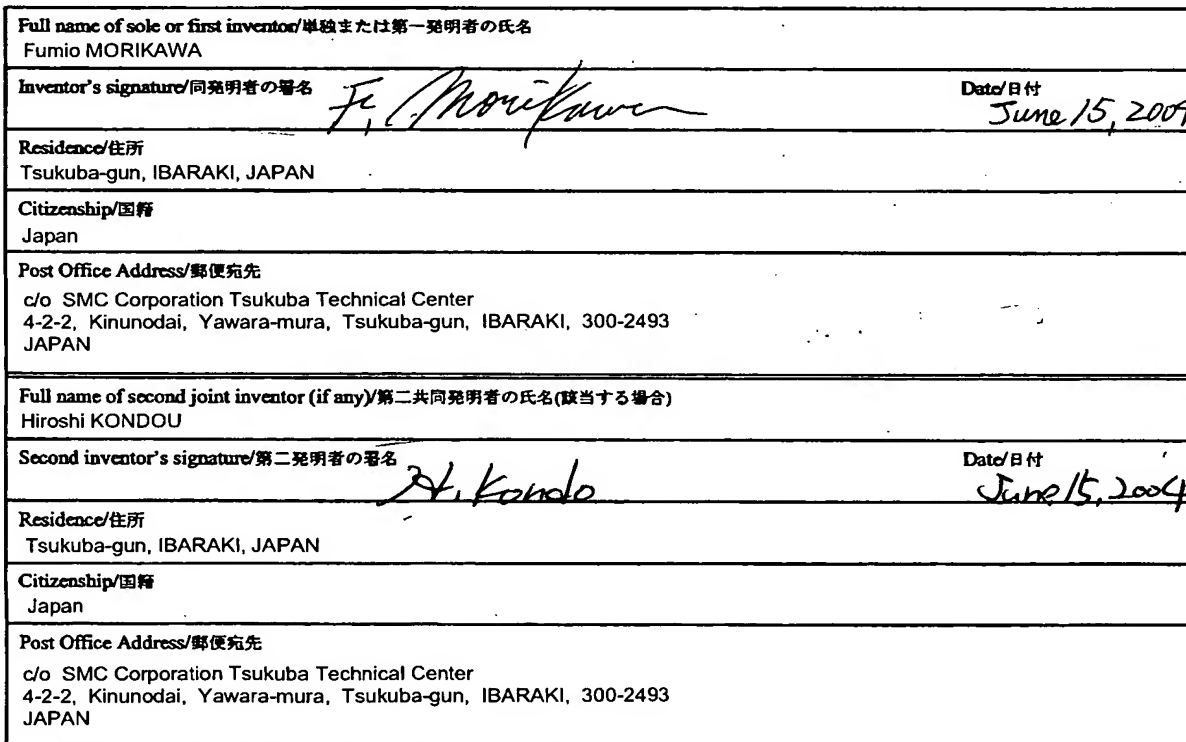 Full name of sole or first inventor/単独または第一発明者の氏名
Fumio MORIKAWA
Inventor's signature/同発明者の署名 F. Morikawa Date/日付
June 15, 2004
Residence/住所
Tsukuba-gun, IBARAKI, JAPAN
Citizenship/国籍
Japan
Post Office Address/郵便宛先
c/o SMC Corporation Tsukuba Technical Center
4-2-2, Kinunodai, Yawara-mura, Tsukuba-gun, IBARAKI, 300-2493
JAPAN
Full name of second joint inventor (if any)/第二共同発明者の氏名(該当する場合)
Hiroshi KONDOU
Second inventor's signature/第二発明者の署名 H. Kondo Date/日付
June 15, 2004
Residence/住所
Tsukuba-gun, IBARAKI, JAPAN
Citizenship/国籍
Japan
Post Office Address/郵便宛先
c/o SMC Corporation Tsukuba Technical Center
4-2-2, Kinunodai, Yawara-mura, Tsukuba-gun, IBARAKI, 300-2493
JAPAN